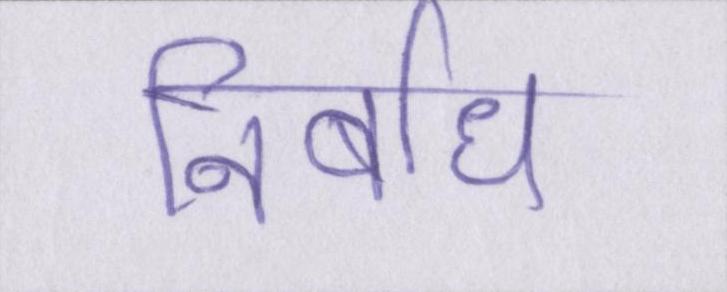 निर्बाध